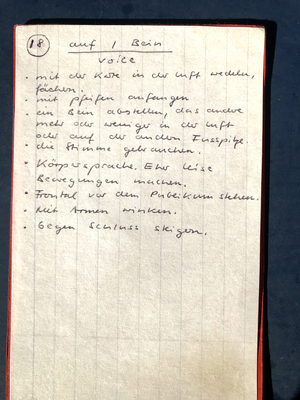 18 auf 1 Bein
voice
• mit der Karte in der Luft wedeln,
fächen.
• mit pfeifen anfangen
• ein Bein abstellen, das andere
mehr oder weniger in der Luft
oder auf der andern Fussspitze.
• die Stimme gebrauchen.
• Körpersprache. Eher leise
Bewegungen machen.
• Frontal vor dem Publikum stehen.
• Mit Armen winken.
• Gegen Schluss steigern.